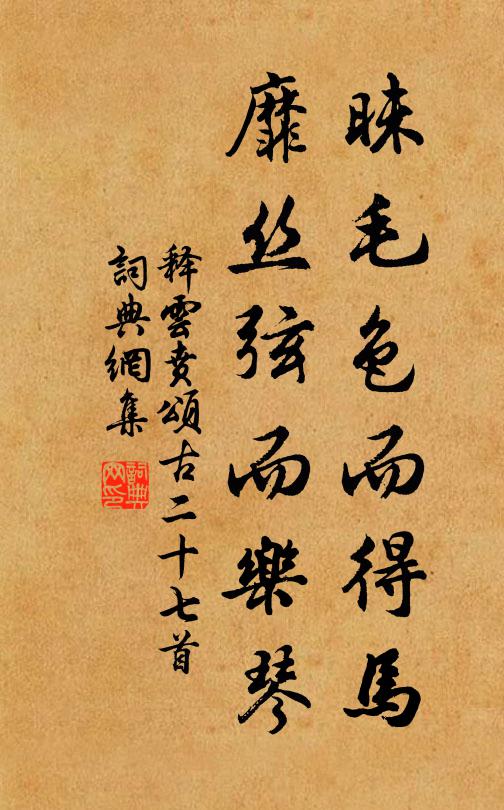 昧毛色而得馬
靡丝弦而樂琴
释雲賁頌古二十七首
詞典網集
詞典網印